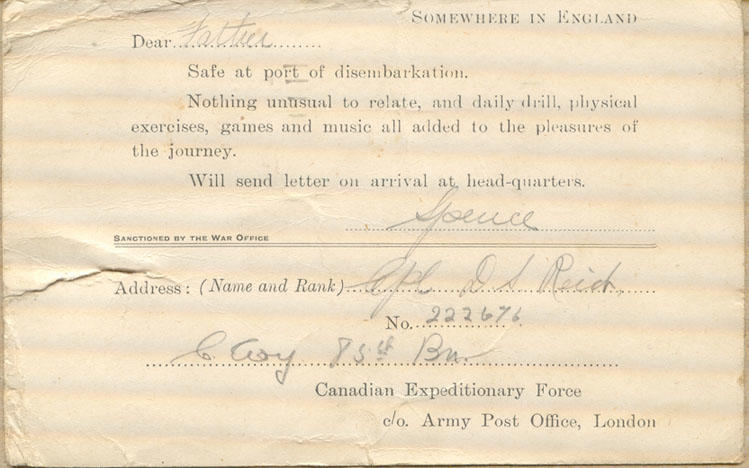 SOMEWHERE IN ENGLAND
Dear Father
Safe at port of disembarkation.
Nothing unusual to relate, and daily drill, physical
exercises, games and music all added to the pleasures of
the journey.
Will send letter on arrival at head-quarters.
Spence
SANCTIONED BY THE WAR OFFICE
Address: (Name and Rank) Cpl D S Reid,
No. 222676
C Coy 85th Bn.
Canadian Expeditionary Force
c/o. Army Post Office, London